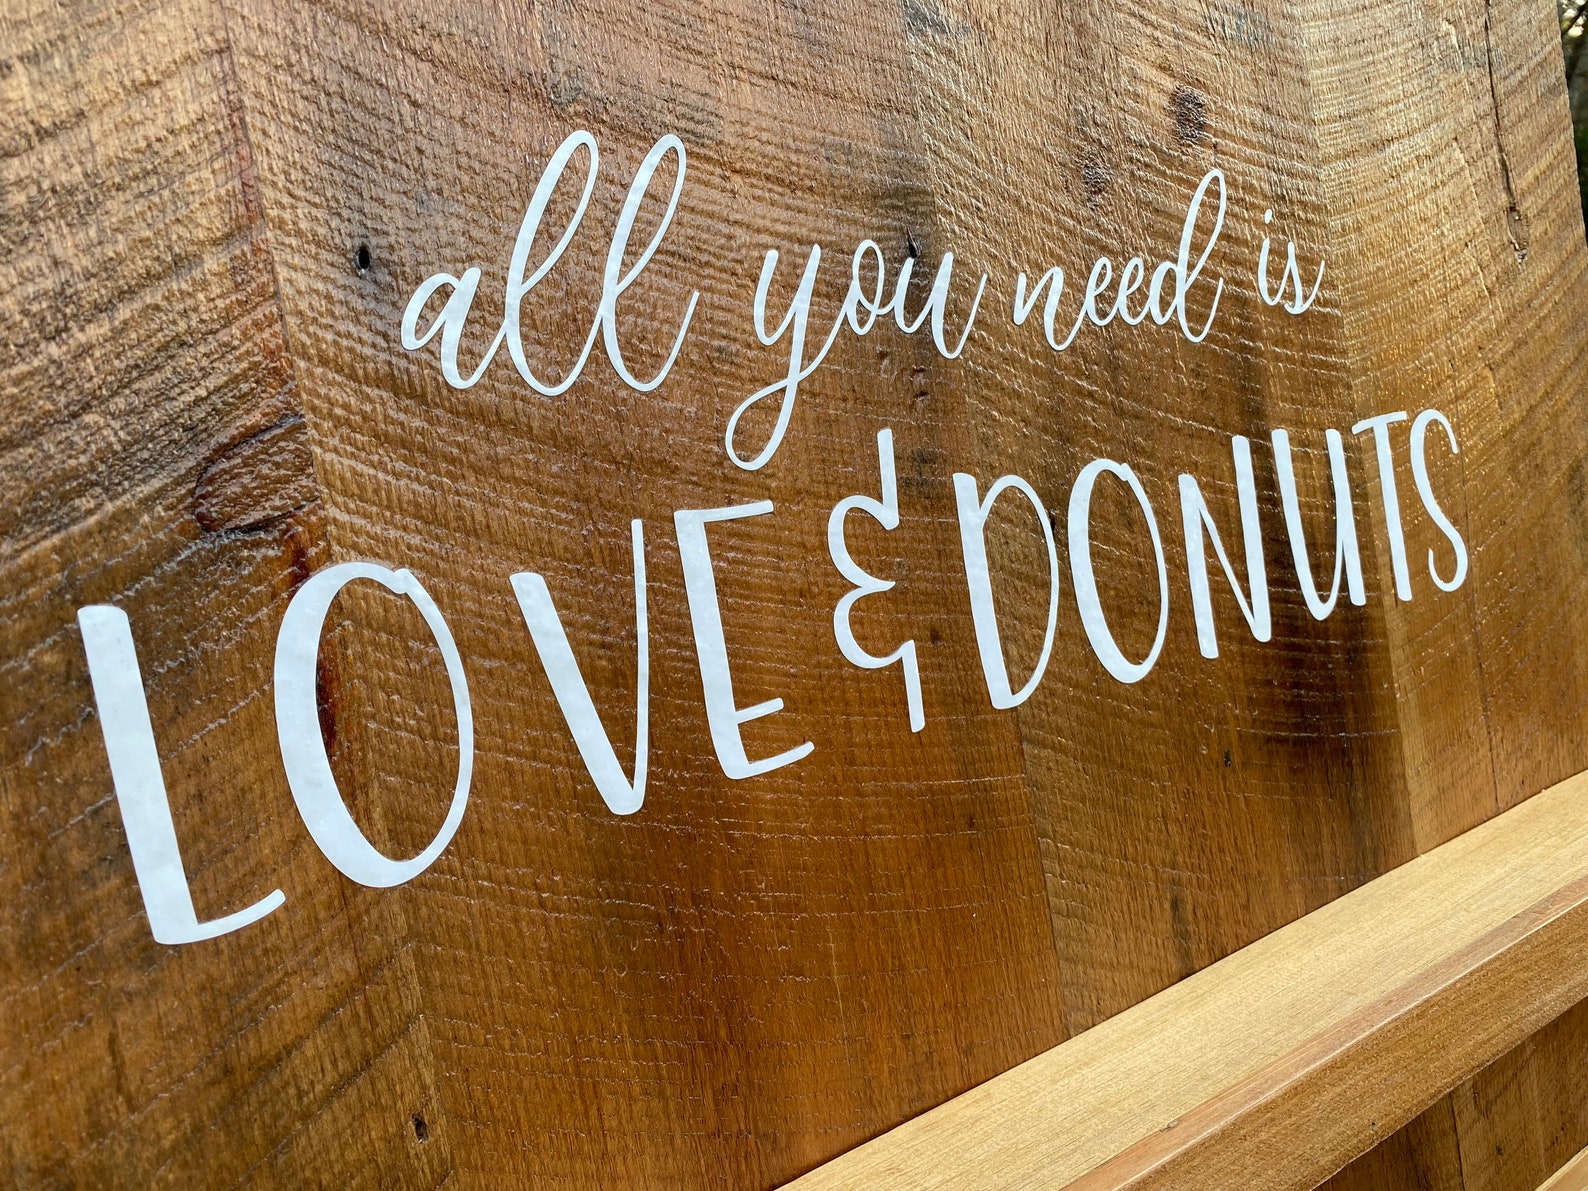 all you need is
LOVE & DONUTS